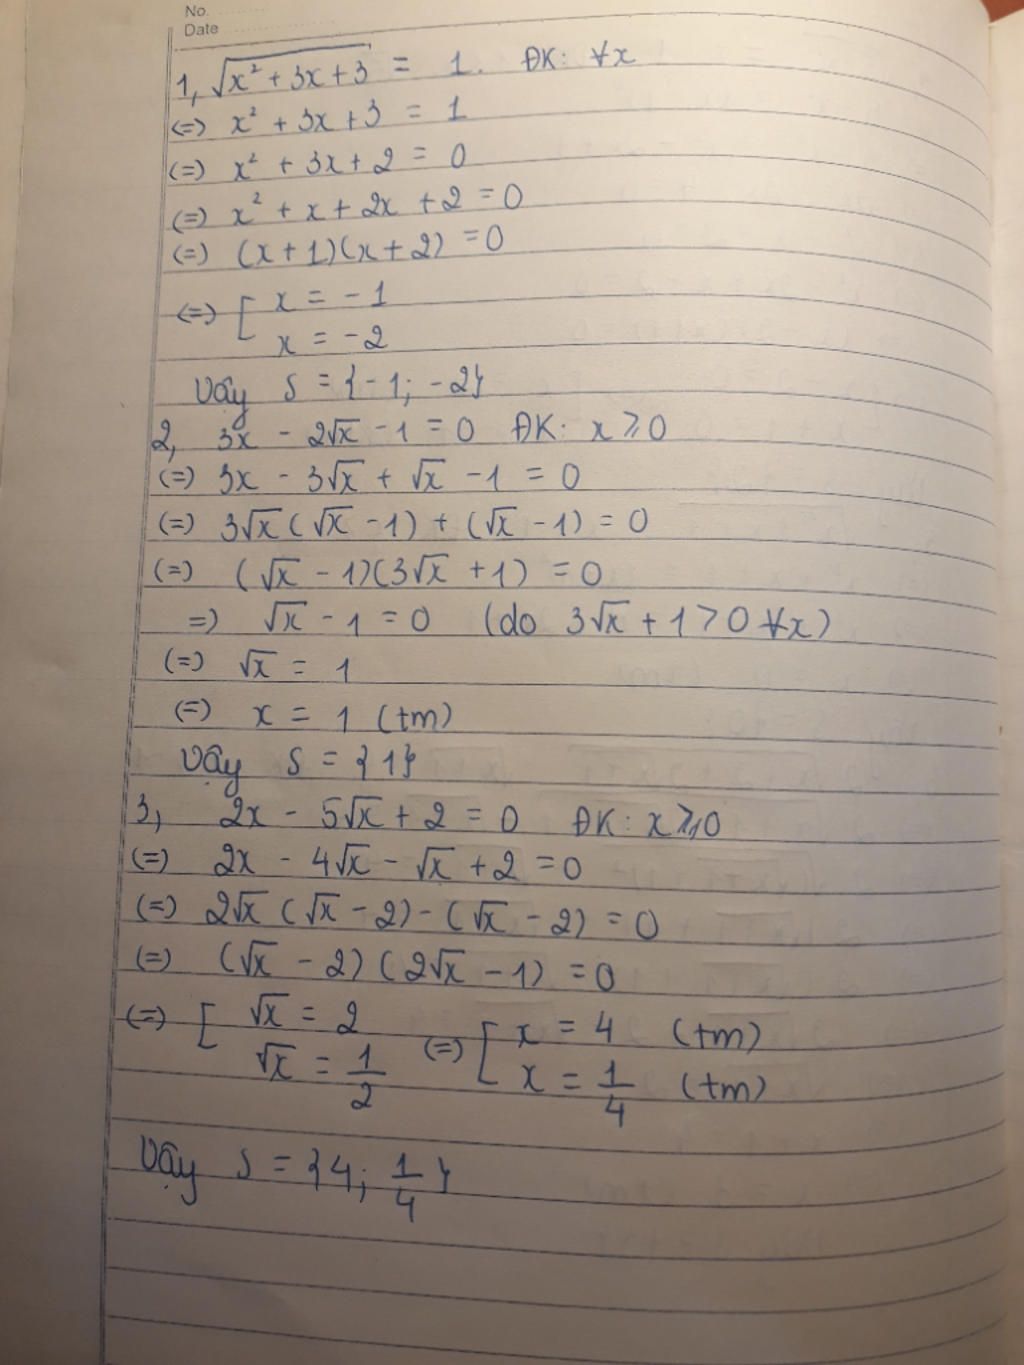 No.
Date
1, √(x² + 3x + 3) = 1. ĐK: ∀x
(=) x² + 3x + 3 = 1
(=) x² + 3x + 2 = 0
(=) x² + x + 2x + 2 = 0
(=) (x + 1)(x + 2) = 0
(=) [ x = -1
x = -2
Vậy S = {-1; -2}
2, 3x - 2√x - 1 = 0 ĐK: x ⩾ 0
(=) 3x - 3√x + √x - 1 = 0
(=) 3√x (√x - 1) + (√x - 1) = 0
(=) (√x - 1)(3√x + 1) = 0
=) √x - 1 = 0 (do 3√x + 1 > 0 ∀x)
(=) √x = 1
(=) x = 1 (tm)
Vậy S = {1}
3, 2x - 5√x + 2 = 0 ĐK: x ⩾ 0
(=) 2x - 4√x - √x + 2 = 0
(=) 2√x (√x - 2) - (√x - 2) = 0
(=) (√x - 2)(2√x - 1) = 0
(=) [ √x = 2 (=) [ x = 4 (tm)
√x = 1/2 x = 1/4 (tm)
Vậy S = {4; 1/4}